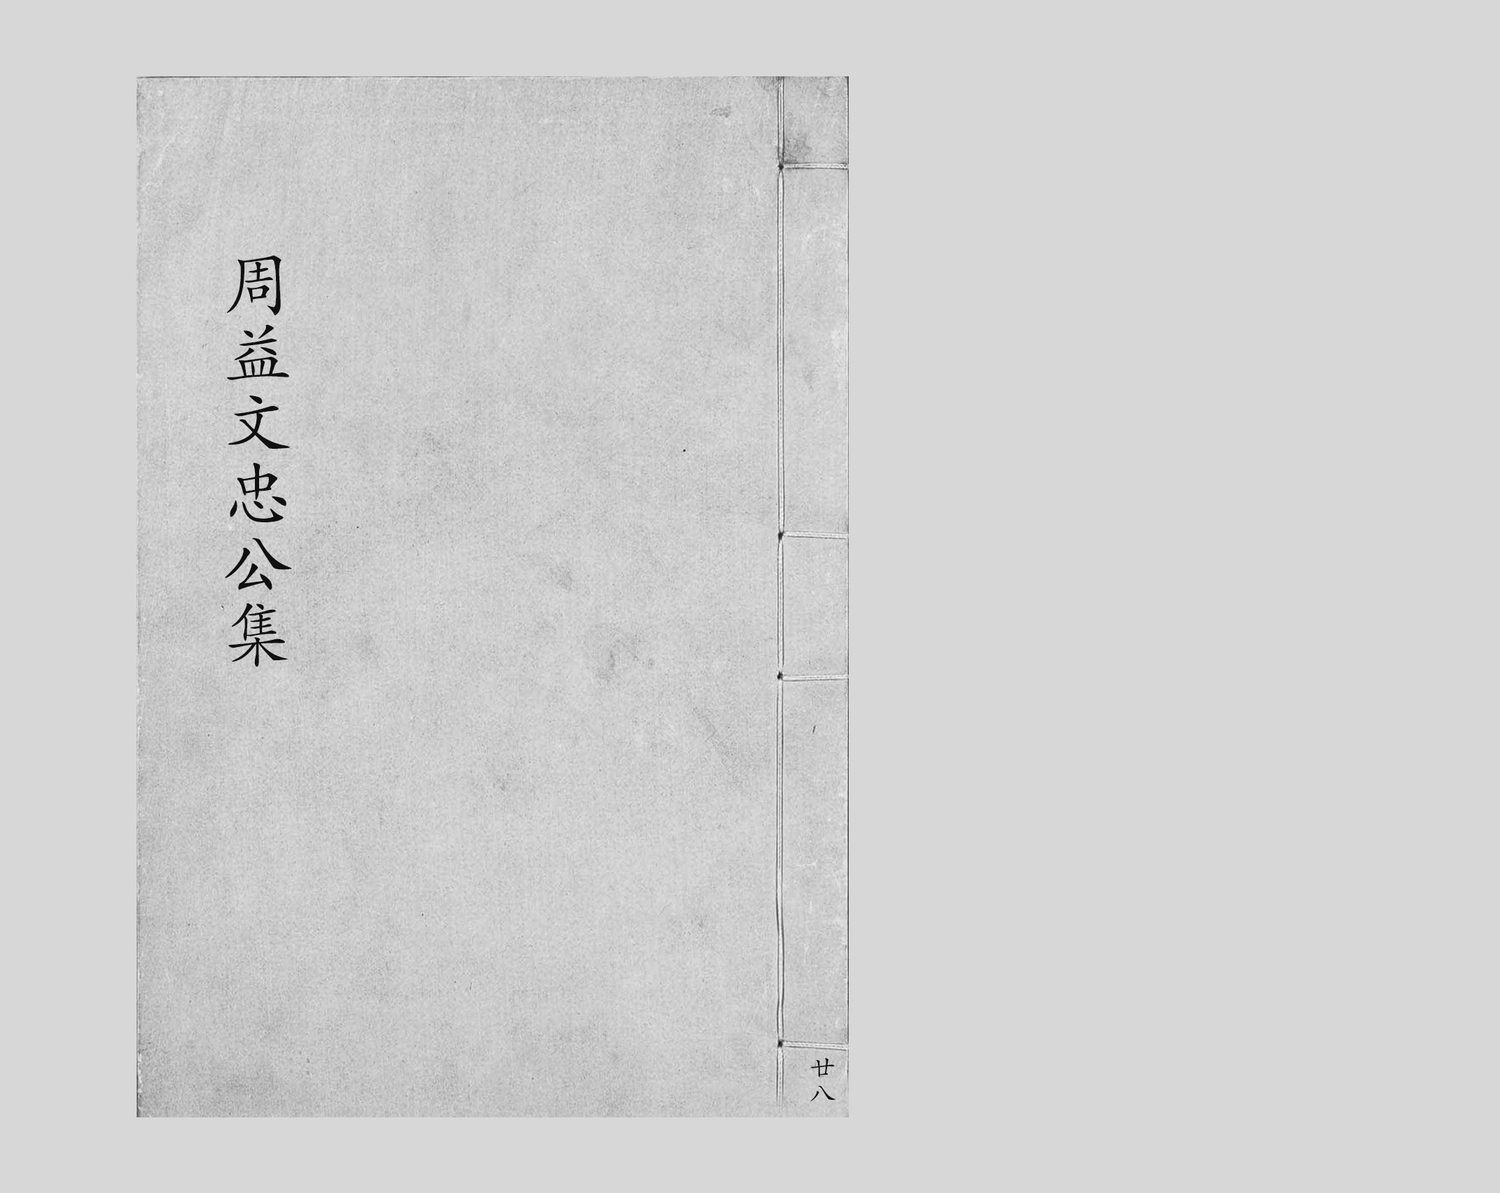 周益文忠公集
廿八